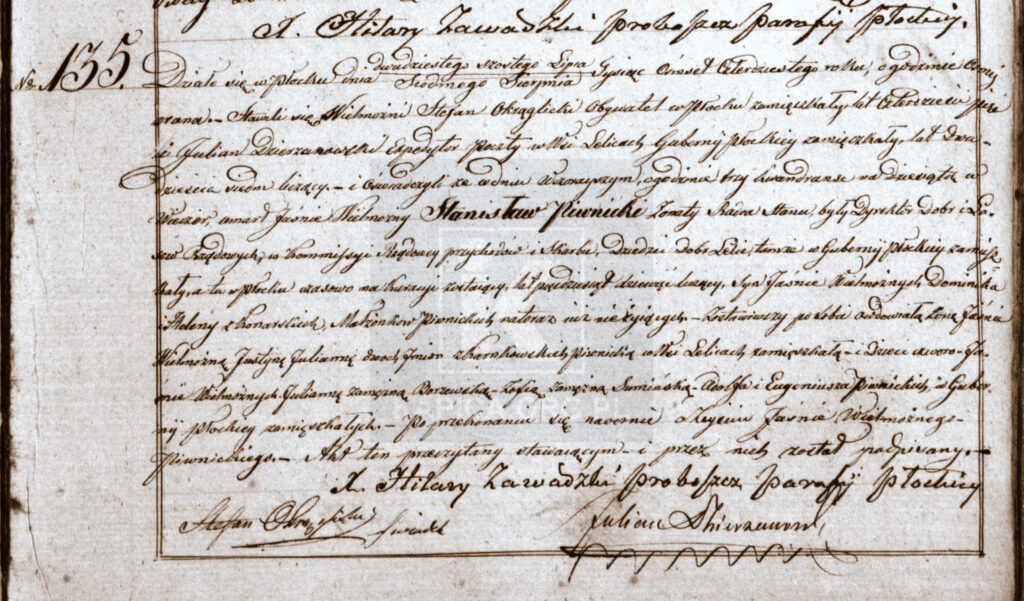 X. Hilary Zawadzki proboszcz parafij Płockiey.
No 135.
Działo się w Płocku dnia dwudziestego szostego Lipca / Siodmego Sierpnia Tysiąc ośmset Czterdziestego roku, o godzinie
zrana. – Stawili się Wielmożni Stefan Okrąglicki Obywatel w Płocku zamięszkały, lat Czterdzieści
i Julian Dzierzanowski Expedytor poczty w Wsi Lelicach Guberny Płockiey zamięszkały, lat Dwa-
dzieścia siedm liczący. – i Oświadczyli że w dniu wczorayszym, o godzinie trzy kwandranse na Dziesiątą w
Wieczor, umarł Jaśnie Wielmożny Stanisław Piwnicki Żonaty Radca Stanu, były Dyrektor Dobr i La-
sow Rządowych, w Kommissyi Rządowey przychodów i Skarbu, Dziedzic dobr Lelic, tamże w Gubernij Płockiey zamięsz-
kały, a tu w Płocku czasowo na kuracyi zostaiący, lat pięćdziesiąt dziewięć liczący, Syn Jaśnie Wielmożnych Dominika
i Heleny z Konarskich, Małżonkow Piwnickich na teraz iuż nie żyiących – Zostawiwszy po sobie owdowiałą Żonę Jaśnie
Wielmożną Justynę Juliannę dwoch Jmion z Karnkowskich Piwnicką w Wsi Lelicach zamięszkałą – i dzieci czworo – Ja-
śnie Wielmożnych Juliannę zamężną Borzewską – Zofią zamężną Sumińską – Adolfa i Eugeniusza Piwnickich, w Guber-
nij Płockiey zamięszkałych. – Po przekonaniu się naocznie o zeyściu Jaśnie Wielmożnego
Piwnickiego. – Akt ten przeczytany stawaiącym – i przez nich został podpisany. –
X. Hilary Zawadzki proboszcz parafij Płockiey
Stefan Okrąglicki świadek
Julian Dzierzanowski